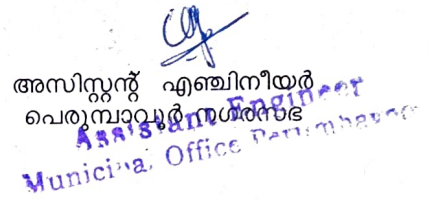 അസിസ്റ്റന്റ് എഞ്ചിനീയർ
പെരുമ്പാവൂർ നഗരസഭ
Assistant Engineer
Municipal Office Perumbavoor